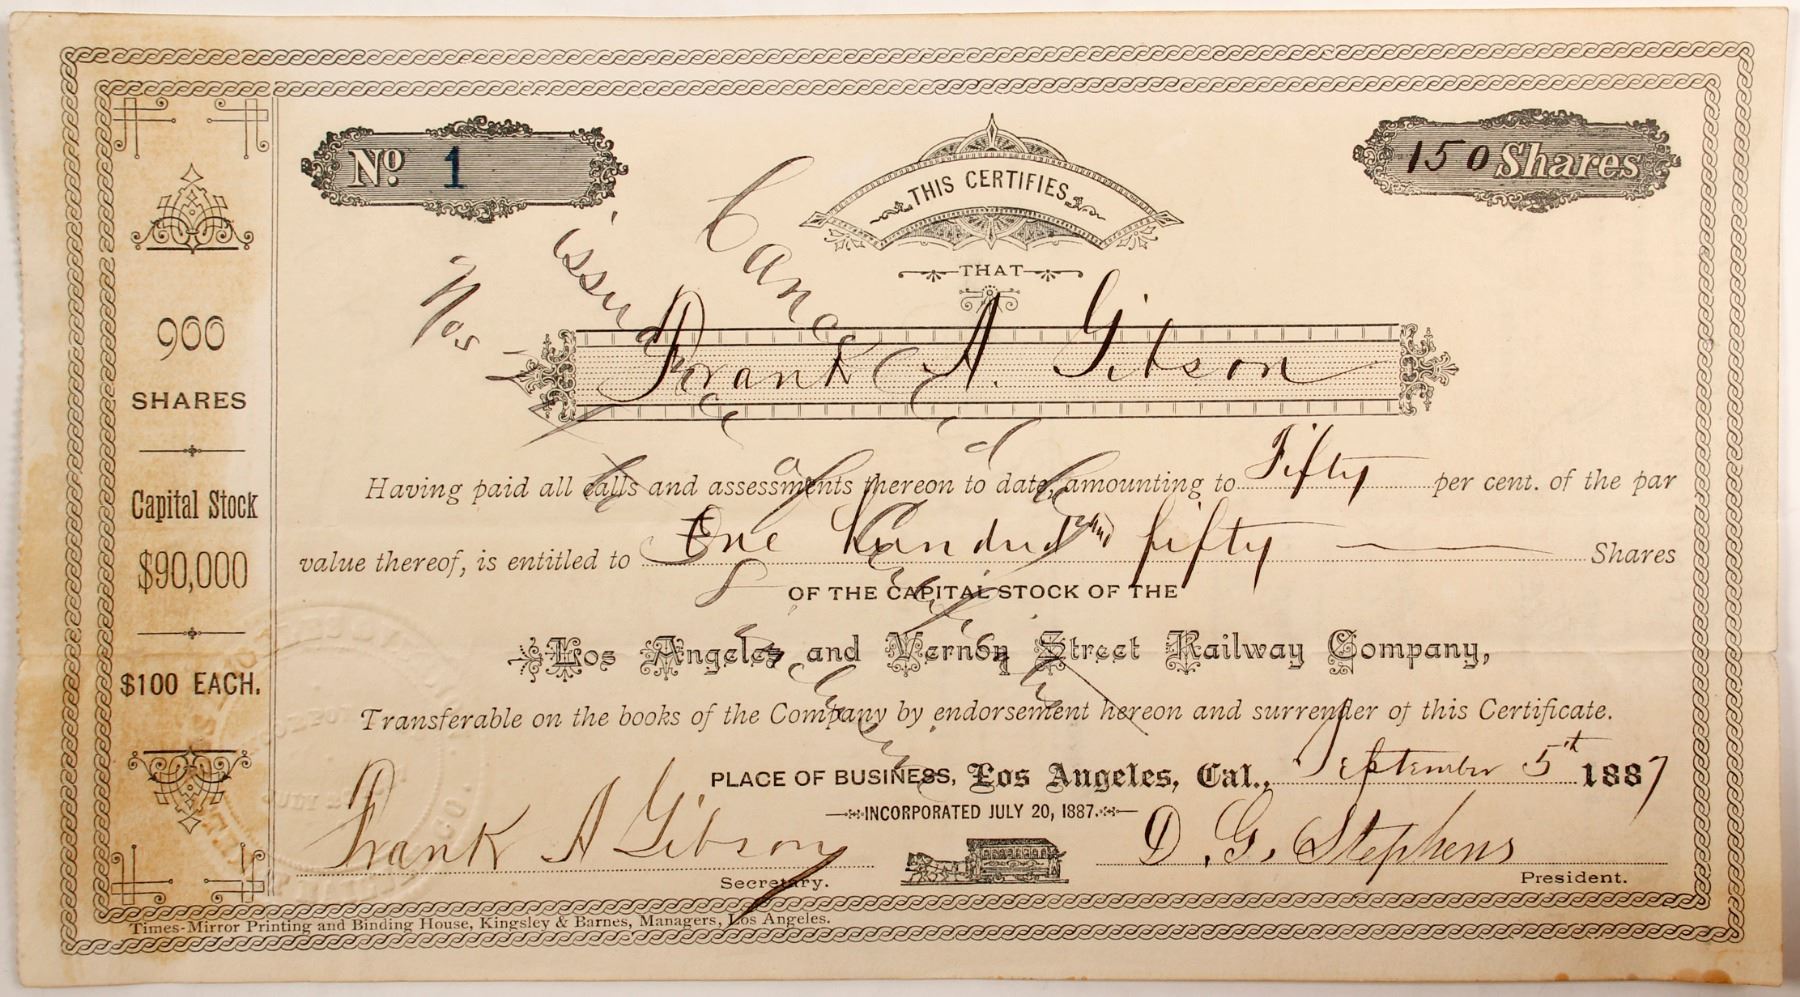 No. 1
150 Shares
THIS CERTIFIES
THAT
Frank A. Gibson
Having paid all calls and assessments thereon to date, amounting to Fifty per cent. of the par
value thereof, is entitled to One Hundred and fifty Shares
OF THE CAPITAL STOCK OF THE
Los Angeles and Vernon Street Railway Company,
Transferable on the books of the Company by endorsement hereon and surrender of this Certificate.
PLACE OF BUSINESS, Los Angeles, Cal., September 5th 1887
INCORPORATED JULY 20, 1887.
Frank A Gibson
Secretary.
D. G. Stephens
President.
Times-Mirror Printing and Binding House, Kingsley & Barnes, Managers, Los Angeles.
900
SHARES
Capital Stock
$90,000
$100 EACH.
Cancelled
Nos
issued